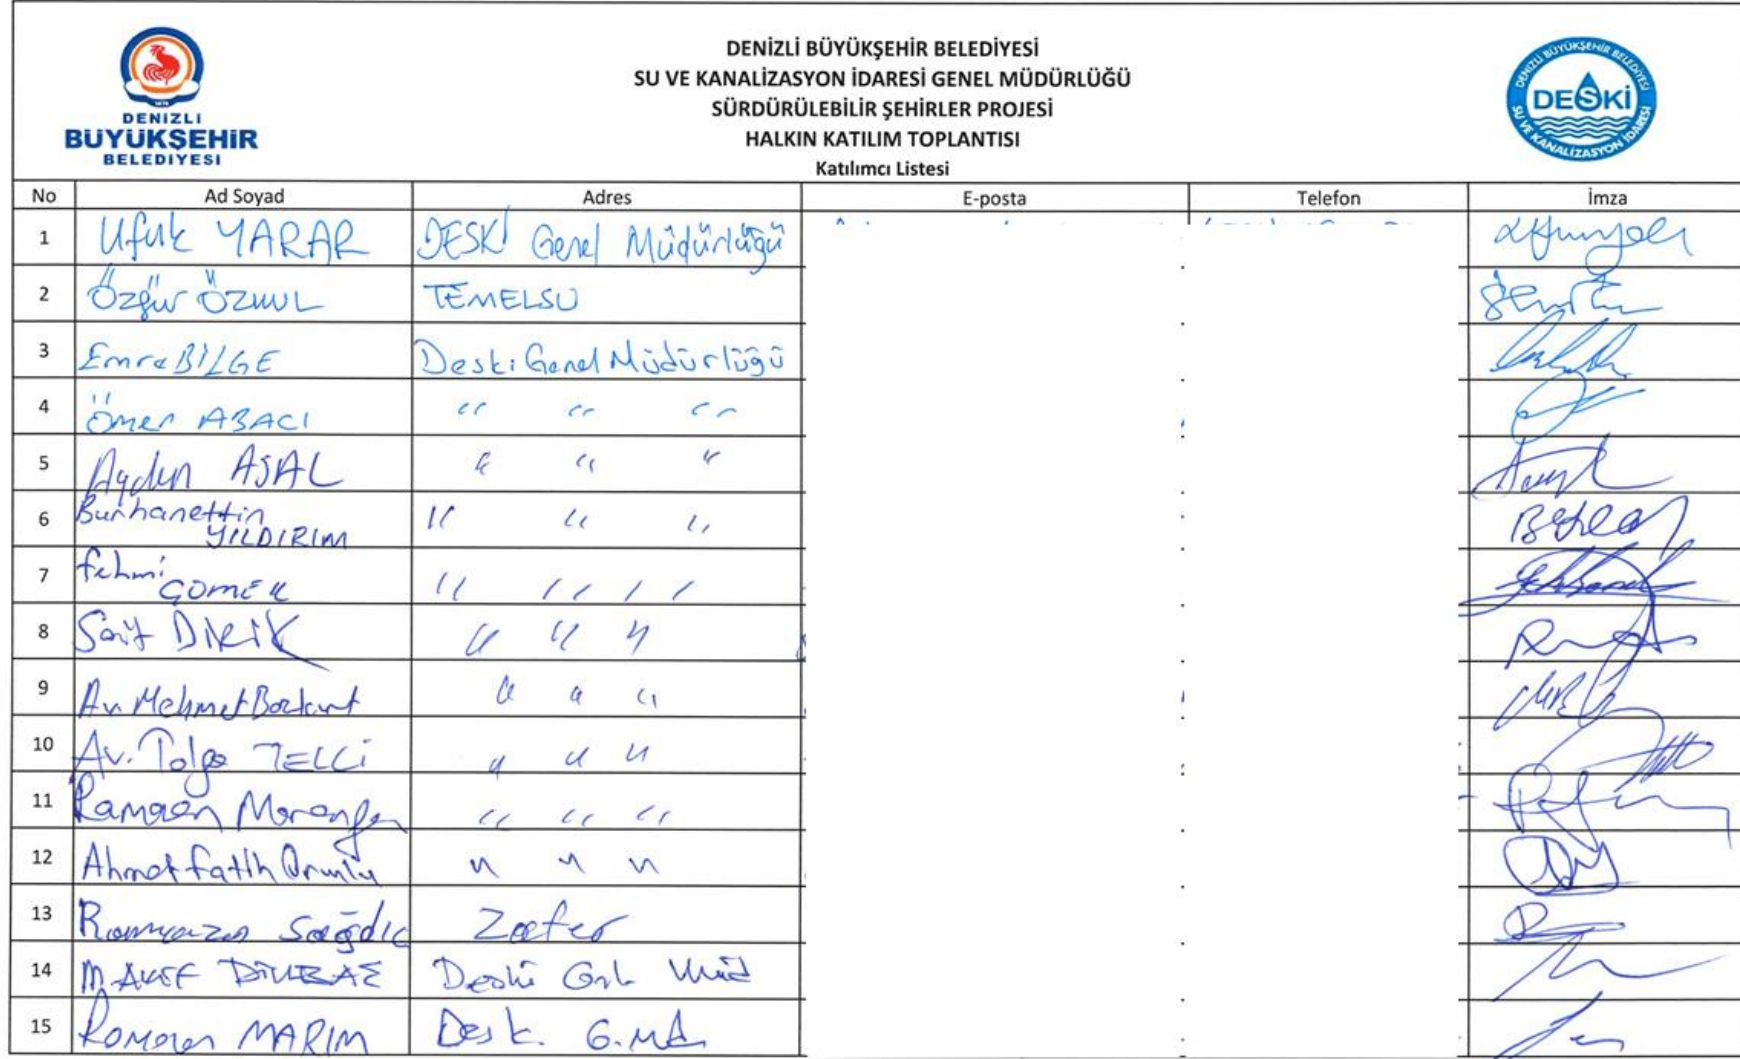 DENİZLİ
BÜYÜKŞEHİR
BELEDİYESİ
DENİZLİ BÜYÜKŞEHİR BELEDİYESİ
SU VE KANALİZASYON İDARESİ GENEL MÜDÜRLÜĞÜ
SÜRDÜRÜLEBİLİR ŞEHİRLER PROJESİ
HALKIN KATILIM TOPLANTISI
Katılımcı Listesi
DENİZLİ BÜYÜKŞEHİR BELEDİYESİ
DESKİ
SU VE KANALİZASYON İDARESİ
No Ad Soyad Adres E-posta Telefon İmza
1 Ufuk YARAR DESKİ Genel Müdürlüğü
2 Özgür TEMELSU
3 Emre BİLGE Deski Genel Müdürlüğü
4 Ömer ABACI " " "
5 Aydın ASAL " " "
6 Burhanettin YILDIRIM " " "
7 Fehmi " " "
8 Sait DİRİK " " "
9 Av. Mehmet Bozkurt " " "
10 Av. Tolga TELCİ " " "
11 Ramazan " " "
12 Ahmet Fatih " " "
13 Ramazan Sağdıç Zafer
14 M. AKİF Deski Gnl. Müd
15 Ramazan MARIM Desk. G.Md.